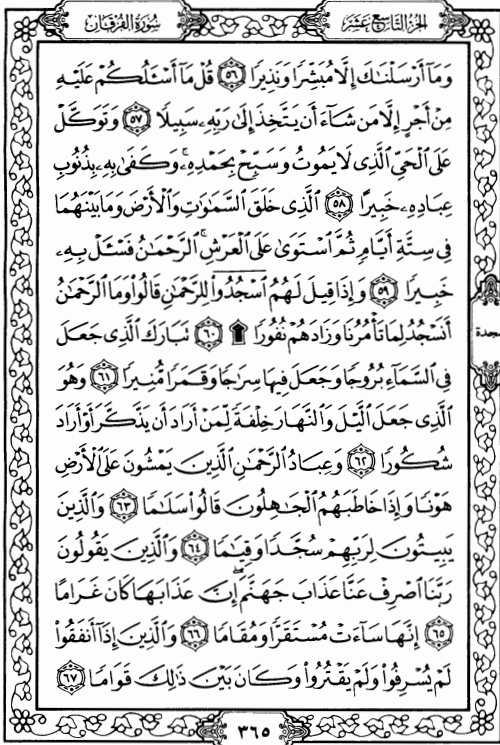 سُورَةُ الفُرْقَان
الجُزْءُ التَّاسِعَ عَشَرَ
وَمَآ أَرْسَلْنَـٰكَ إِلَّا مُبَشِّرًا وَنَذِيرًا ٥٦ قُلْ مَآ أَسْـَٔلُكُمْ عَلَيْهِ
مِنْ أَجْرٍ إِلَّا مَن شَآءَ أَن يَتَّخِذَ إِلَىٰ رَبِّهِۦ سَبِيلًا ٥٧ وَتَوَكَّلْ
عَلَى ٱلْحَىِّ ٱلَّذِى لَا يَمُوتُ وَسَبِّحْ بِحَمْدِهِۦ ۚ وَكَفَىٰ بِهِۦ بِذُنُوبِ
عِبَادِهِۦ خَبِيرًا ٥٨ ٱلَّذِى خَلَقَ ٱلسَّمَـٰوَٰتِ وَٱلْأَرْضَ وَمَا بَيْنَهُمَا
فِى سِتَّةِ أَيَّامٍ ثُمَّ ٱسْتَوَىٰ عَلَى ٱلْعَرْشِ ۚ ٱلرَّحْمَـٰنُ فَسْـَٔلْ بِهِۦ
خَبِيرًا ٥٩ وَإِذَا قِيلَ لَهُمُ ٱسْجُدُوا۟ لِلرَّحْمَـٰنِ قَالُوا۟ وَمَا ٱلرَّحْمَـٰنُ
أَنَسْجُدُ لِمَا تَأْمُرُنَا وَزَادَهُمْ نُفُورًا ۩ ٦٠ تَبَارَكَ ٱلَّذِى جَعَلَ
فِى ٱلسَّمَآءِ بُرُوجًا وَجَعَلَ فِيهَا سِرَٰجًا وَقَمَرًا مُّنِيرًا ٦١ وَهُوَ
ٱلَّذِى جَعَلَ ٱلَّيْلَ وَٱلنَّهَارَ خِلْفَةً لِّمَنْ أَرَادَ أَن يَذَّكَّرَ أَوْ أَرَادَ
شُكُورًا ٦٢ وَعِبَادُ ٱلرَّحْمَـٰنِ ٱلَّذِينَ يَمْشُونَ عَلَى ٱلْأَرْضِ
هَوْنًا وَإِذَا خَاطَبَهُمُ ٱلْجَـٰهِلُونَ قَالُوا۟ سَلَـٰمًا ٦٣ وَٱلَّذِينَ
يَبِيتُونَ لِرَبِّهِمْ سُجَّدًا وَقِيَـٰمًا ٦٤ وَٱلَّذِينَ يَقُولُونَ
رَبَّنَا ٱصْرِفْ عَنَّا عَذَابَ جَهَنَّمَ ۖ إِنَّ عَذَابَهَا كَانَ غَرَامًا
٦٥ إِنَّهَا سَآءَتْ مُسْتَقَرًّا وَمُقَامًا ٦٦ وَٱلَّذِينَ إِذَآ أَنفَقُوا۟
لَمْ يُسْرِفُوا۟ وَلَمْ يَقْتُرُوا۟ وَكَانَ بَيْنَ ذَٰلِكَ قَوَامًا ٦٧
سجدة
٣٦٥